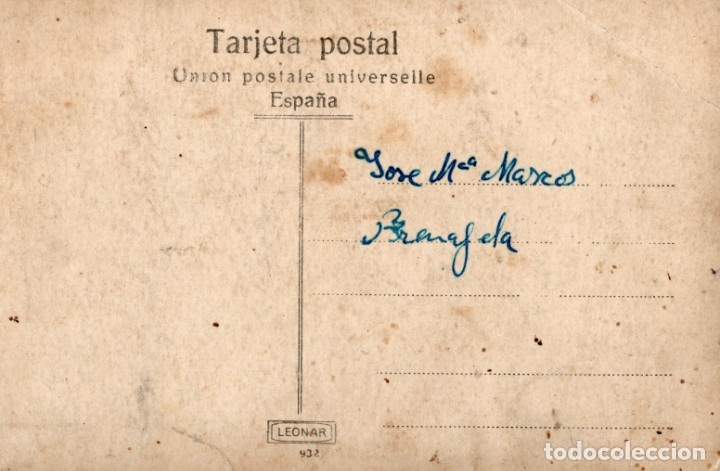 Tarjeta postal
Union postale universelle
España
Jose Mª Marcos
LEONAR
932
todocoleccion.net